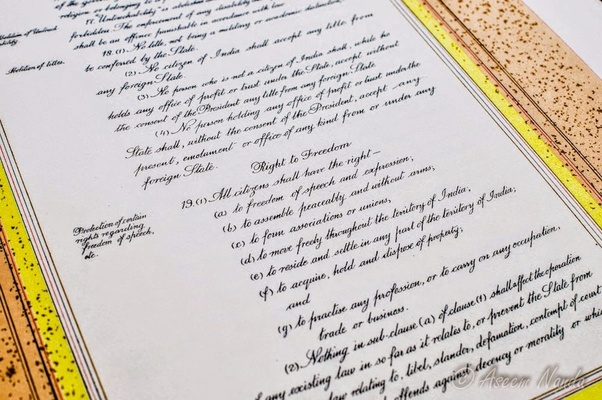 religion or belonging to
17. Untouchability is abolished
forbidden. The enforcement of any disability
shall be an offence punishable in accordance with law.
Abolition of titles.
18. (1) No title, not being a military or academic distinction,
be conferred by the State.
(2) No citizen of India shall accept any title from
any foreign State.
(3) No person who is not a citizen of India shall, while he
holds any office of profit or trust under the State, accept without
the consent of the President any title from any foreign State.
(4) No person holding any office of profit or trust under the
State shall, without the consent of the President, accept any
present, emolument or office of any kind from or under any
foreign State.
Right to Freedom
Protection of certain
rights regarding
freedom of speech,
etc.
19. (1) All citizens shall have the right—
(a) to freedom of speech and expression;
(b) to assemble peaceably and without arms;
(c) to form associations or unions;
(d) to move freely throughout the territory of India;
(e) to reside and settle in any part of the territory of India;
(f) to acquire, hold and dispose of property;
and
(g) to practise any profession, or to carry on any occupation,
trade or business.
(2) Nothing in sub-clause (a) of clause (1) shall affect the operation
of any existing law in so far as it relates to, or prevent the State from
law relating to, libel, slander, defamation, contempt of court
offends against decency or morality or which
© Aseem Nanda